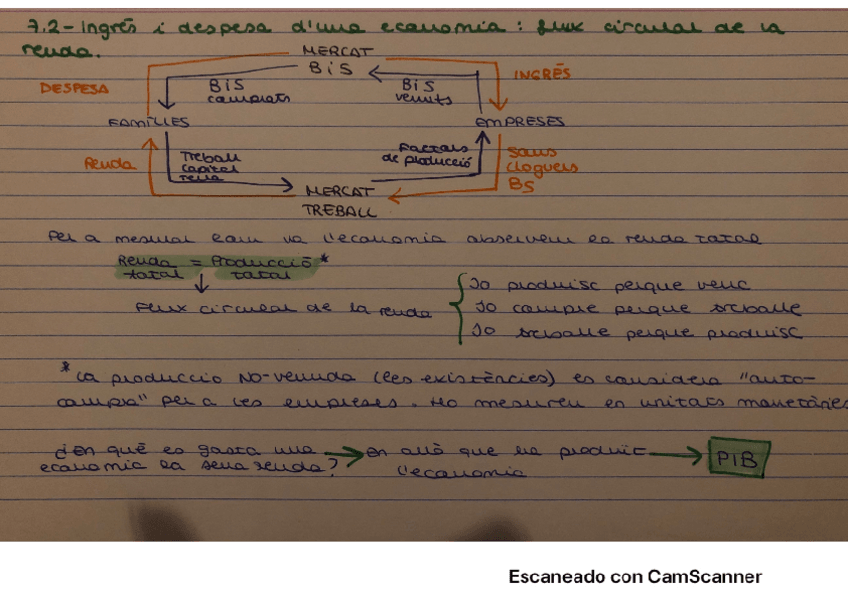 7.2- Ingrés i despesa d'una economia: flux circular de la
renda.
MERCAT
BiS
DESPESA
BiS
comprats
BiS
venuts
INGRÉS
FAMÍLIES
EMPRESES
Renda
Treball
capital
terra
Factors
de producció
Sous
lloguers
BS
MERCAT
TREBALL
Per a mesurar com va l'economia observem la renda total
Renda = Producció *
total total
Flux circular de la renda
Jo produïsc perque venc
Jo compre perque treballe
Jo treballe perque produïsc
* La produccio NO-venuda (les existències) es considera "auto-
compra" per a les empreses. Ho mesurem en unitats monetàries
¿En què es gasta una
economia la seua renda?
En allò que ha produït
l'economia
PIB
Escaneado con CamScanner